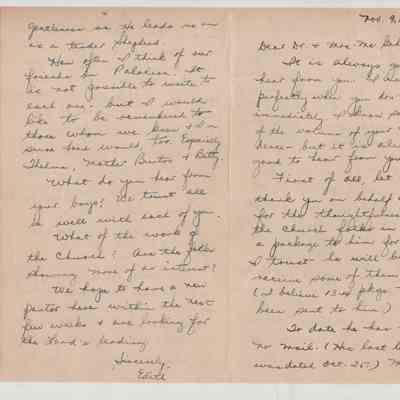 Gentleness as He leads us on
as a tender Shepherd.
How often I think of our
friends in Palatine. It
is not possible to write to
each one - but I would
like to be remembered to
those whom we knew & I'm
sure hers would, too. Especially
Thelma, & Betty
What do you hear from
your boys? We trust all
is well with each of you.
What of the work of
the Church? Are the
showing more of an interest?
We hope to have a new
pastor here within the next
few weeks & are looking for
the Lord's leading.
Sincerely,
Edith
Nov. 9,
Dear Dr. & Mrs. Mc
It is always g
hear from you. I
perfectly when you don
immediately. I know
of the volume of your
here - but it is al
good to hear from you
First of all, let
thank you on behalf
for the thoughtfulness
the church folks in
a package to him for
I trust he will b
receive some of them
(I believe 13 pkgs
been sent to him)
To date he has
no mail. (His last l
was dated Oct. 25.)